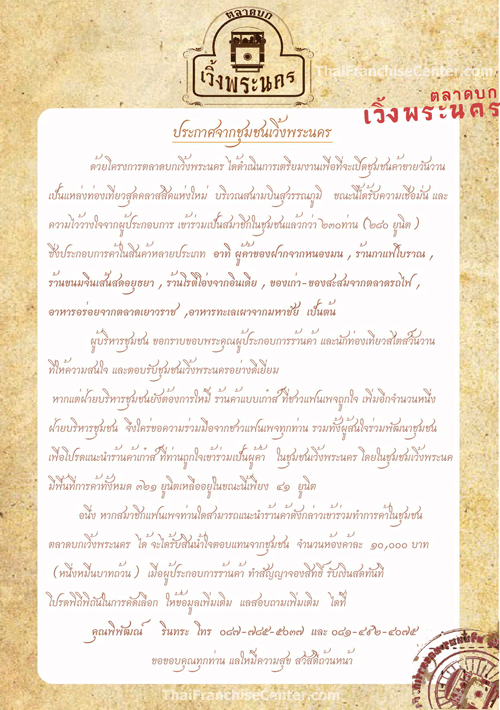 ตลาดบก
เวิ้งพระนคร
ThaiFranchiseCenter.com
ตลาดบก
เวิ้งพระนคร
ประกาศจากชุมชนเวิ้งพระนคร
ด้วยโครงการตลาดบกเวิ้งพระนคร ได้ดำเนินการเตรียมงานเพื่อที่จะเปิดชุมชนค้าขายวันวาน
เป็นแหล่งท่องเที่ยวสุดคลาสสิคแห่งใหม่ บริเวณสนามบินสุวรรณภูมิ ขณะนี้ได้รับความเชื่อมั่น และ
ความไว้วางใจจากผู้ประกอบการ เข้าร่วมเป็นสมาชิกในชุมชนแล้วกว่า ๒๓๐ท่าน (๒๘๐ ยูนิต )
ซึ่งประกอบการค้าในสินค้าหลายประเภท อาทิ ผู้ค้าของฝากจากหนองมน , ร้านกาแฟโบราณ ,
ร้านขนมจีนเส้นสดอยุธยา , ร้านโรตีโอ่งจากอินเดีย , ของเก่า-ของสะสมจากตลาดรถไฟ ,
อาหารอร่อยจากตลาดเยาวราช ,อาหารทะเลเผาจากมหาชัย เป็นต้น
ผู้บริหารชุมชน ขอกราบขอบพระคุณผู้ประกอบการร้านค้า และนักท่องเที่ยวสไตส์วันวาน
ที่ให้ความสนใจ และตอบรับชุมชนเวิ้งพระนครอย่างดีเยี่ยม
หากแต่ฝ่ายบริหารชุมชนยังต้องการให้มี ร้านค้าแบบเก๋าส์ ที่ชาวแฟนเพจถูกใจ เพิ่มอีกจำนวนหนึ่ง
ฝ่ายบริหารชุมชน จึงใคร่ขอความร่วมมือจากชาวแฟนเพจทุกท่าน รวมทั้งผู้สนใจร่วมพัฒนาชุมชน
เพื่อโปรดแนะนำร้านค้าเก๋าส์ ที่ท่านถูกใจเข้าร่วมเป็นผู้ค้า ในชุมชนเวิ้งพระนคร โดยในชุมชมเวิ้งพระนค
มีพื้นที่การค้าทั้งหมด ๓๒๑ ยูนิตเหลืออยู่ในขณะนี้เพียง ๔๑ ยูนิต
อนึ่ง หากสมาชิกแฟนเพจท่านใดสามารถแนะนำร้านค้าดังกล่าวเข้าร่วมทำการค้าในชุมชน
ตลาดบกเวิ้งพระนคร ได้ จะได้รับสินน้ำใจตอบแทนจากชุมชน จำนวนห้องค้าละ ๑๐,๐๐๐ บาท
(หนึ่งหมื่นบาทถ้วน ) เมื่อผู้ประกอบการร้านค้า ทำสัญญาจองสิทธิ์ รับเงินสดทันที
โปรดพิถีพิถันในการคัดเลือก ให้ข้อมูลเพิ่มเติม และสอบถามเพิ่มเติม ได้ที่
คุณพิพัฒณ์ รินทระ โทร ๐๘๗-๗๘๕-๕๖๓๗ และ ๐๘๑-๔๕๒-๔๐๗๕
ขอขอบคุณทุกท่าน และให้มีความสุข สวัสดีถ้วนหน้า
ThaiFranchiseCenter.com